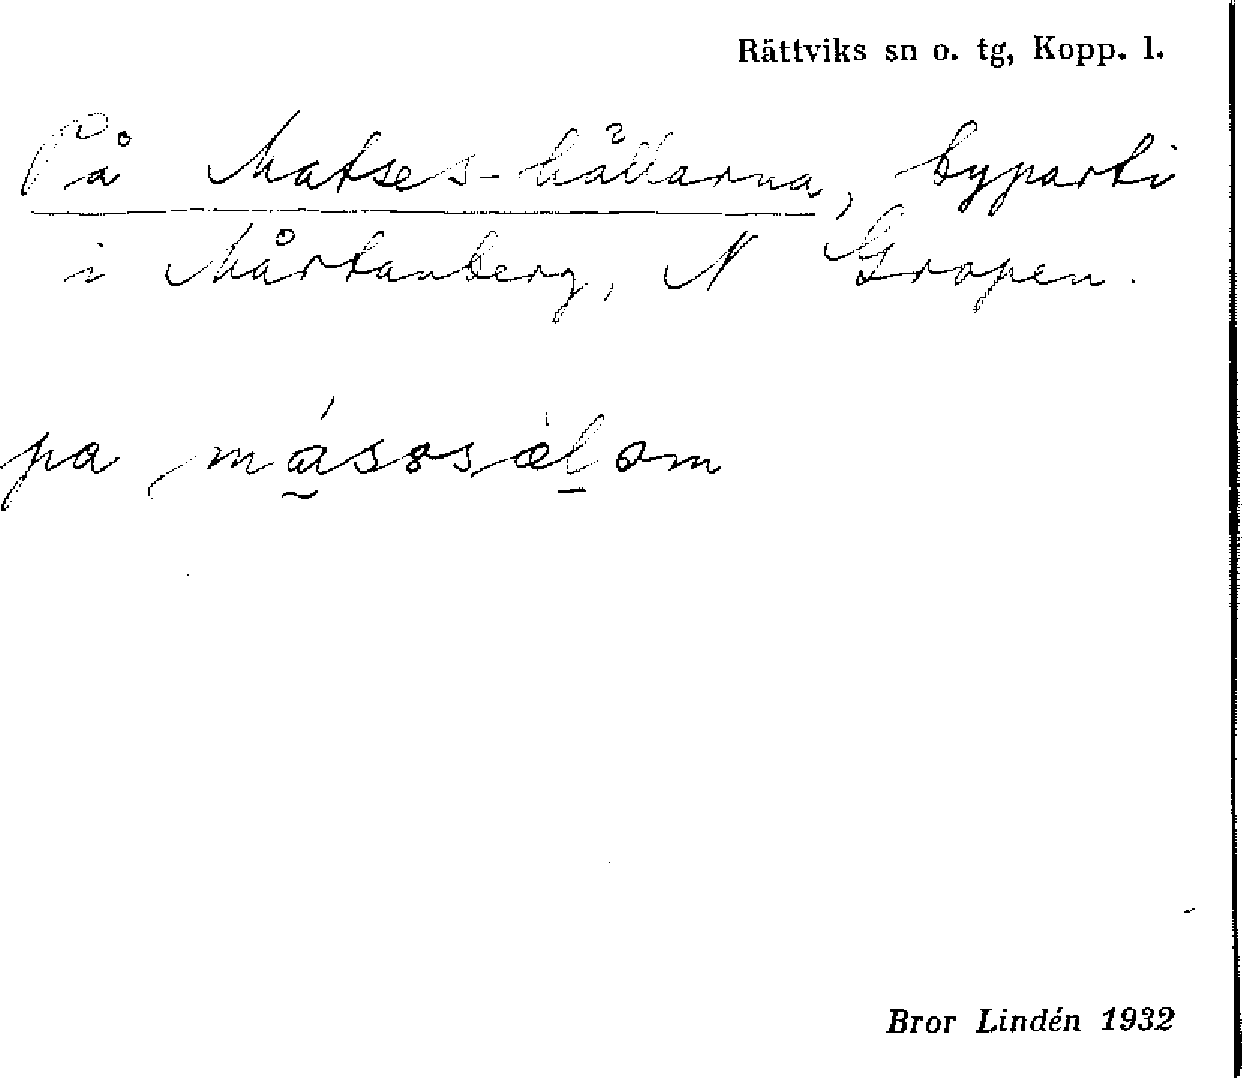 Rättviks sn o. tg, Kopp. l.
På Matses-hållarna, byparti
i Mårtanberg, N Gropen.
pa
Bror Lindén 1932